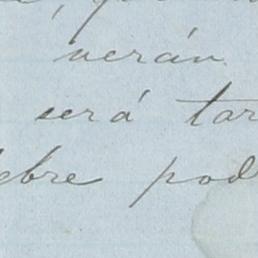 verán
será tar
lebre pod